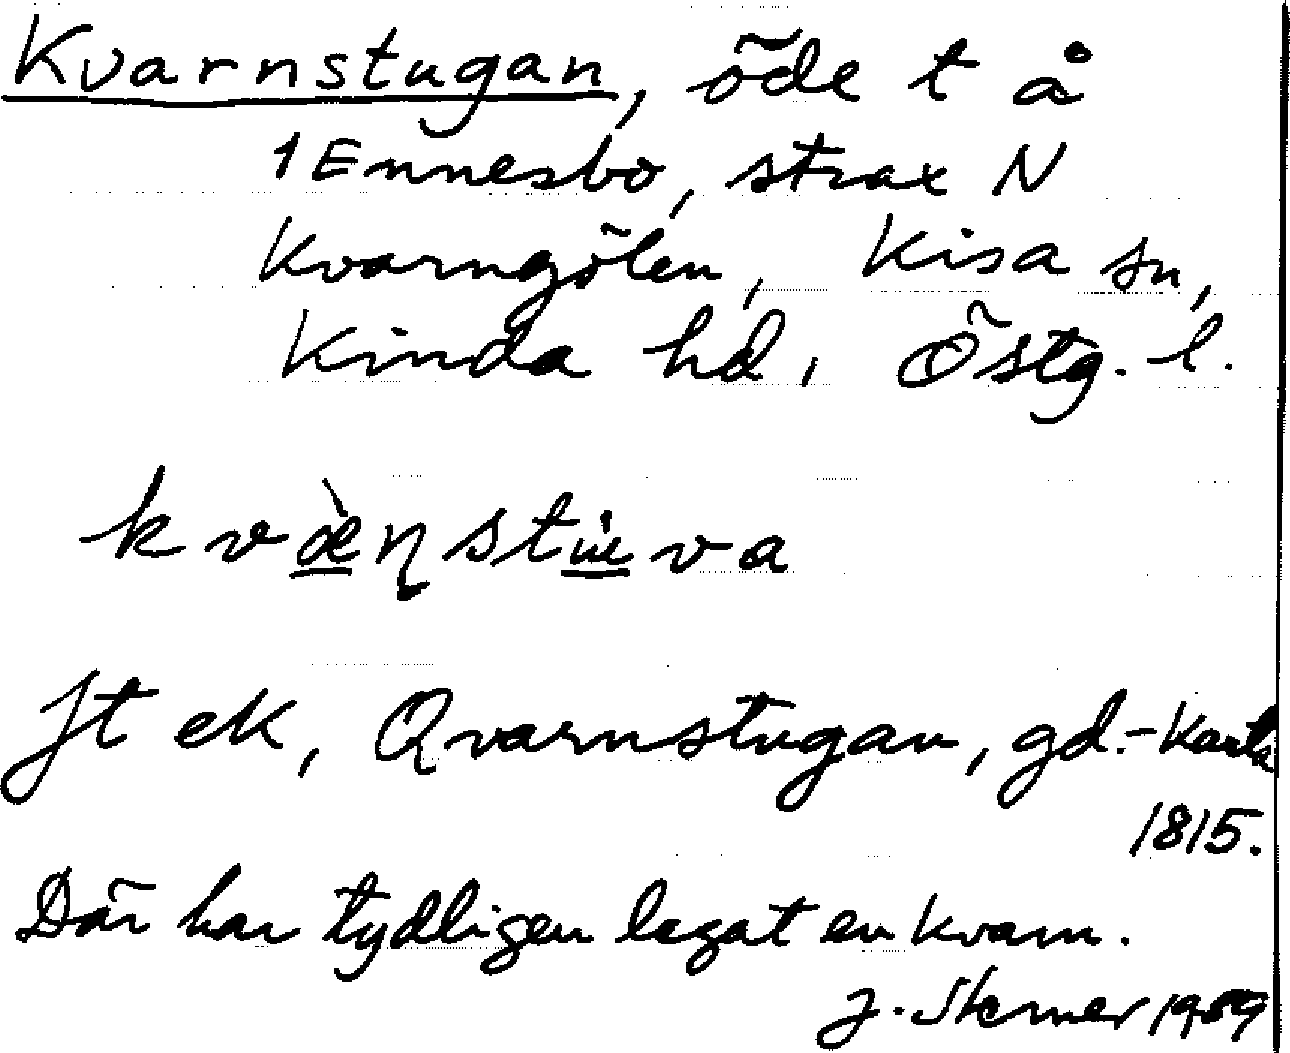 Kvarnstugan, öde t å
1 Ennesbo, strax N
Kvarngölen, Kisa sn,
Kinda hd, Östg. l.
kvæ̀ņstu̇va
Jt ek, Qvarnstugan, gd.-karta
1815.
Där har tydligen legat en kvarn.
J. Sterner 1989